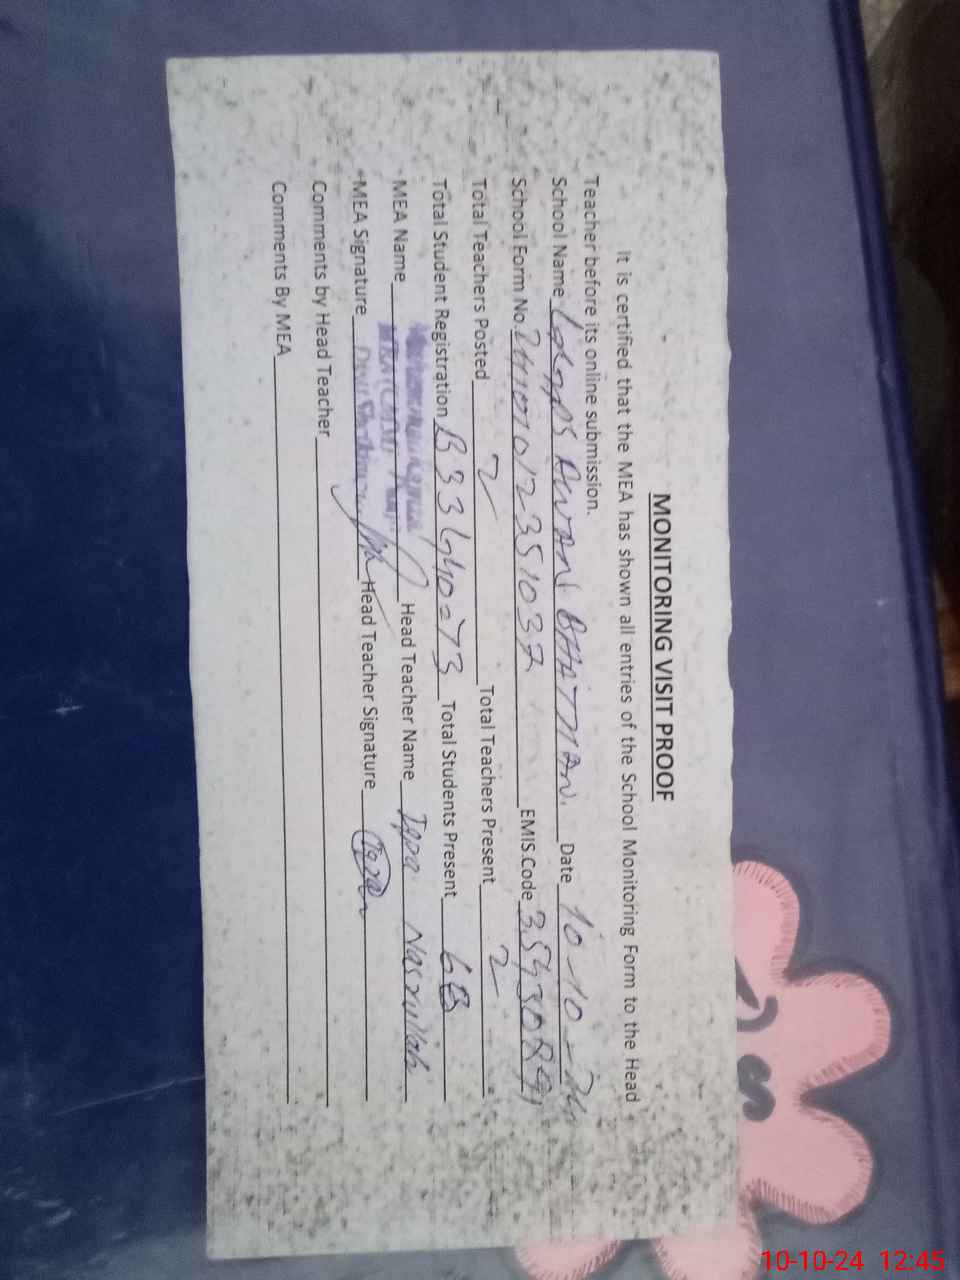 MONITORING VISIT PROOF
It is certified that the MEA has shown all entries of the School Monitoring Form to the Head
Teacher before its online submission.
School Name BHATTIAN. Date 10-10-24
School Form No. EMIS Code
Total Teachers Posted 2 Total Teachers Present 2
Total Student Registration B 33 G 40=73 Total Students Present 68
MEA Name Head Teacher Name Iqra Nasrullah
MEA Signature Head Teacher Signature Iqra
Comments by Head Teacher
Comments By MEA
10-10-24 12:45